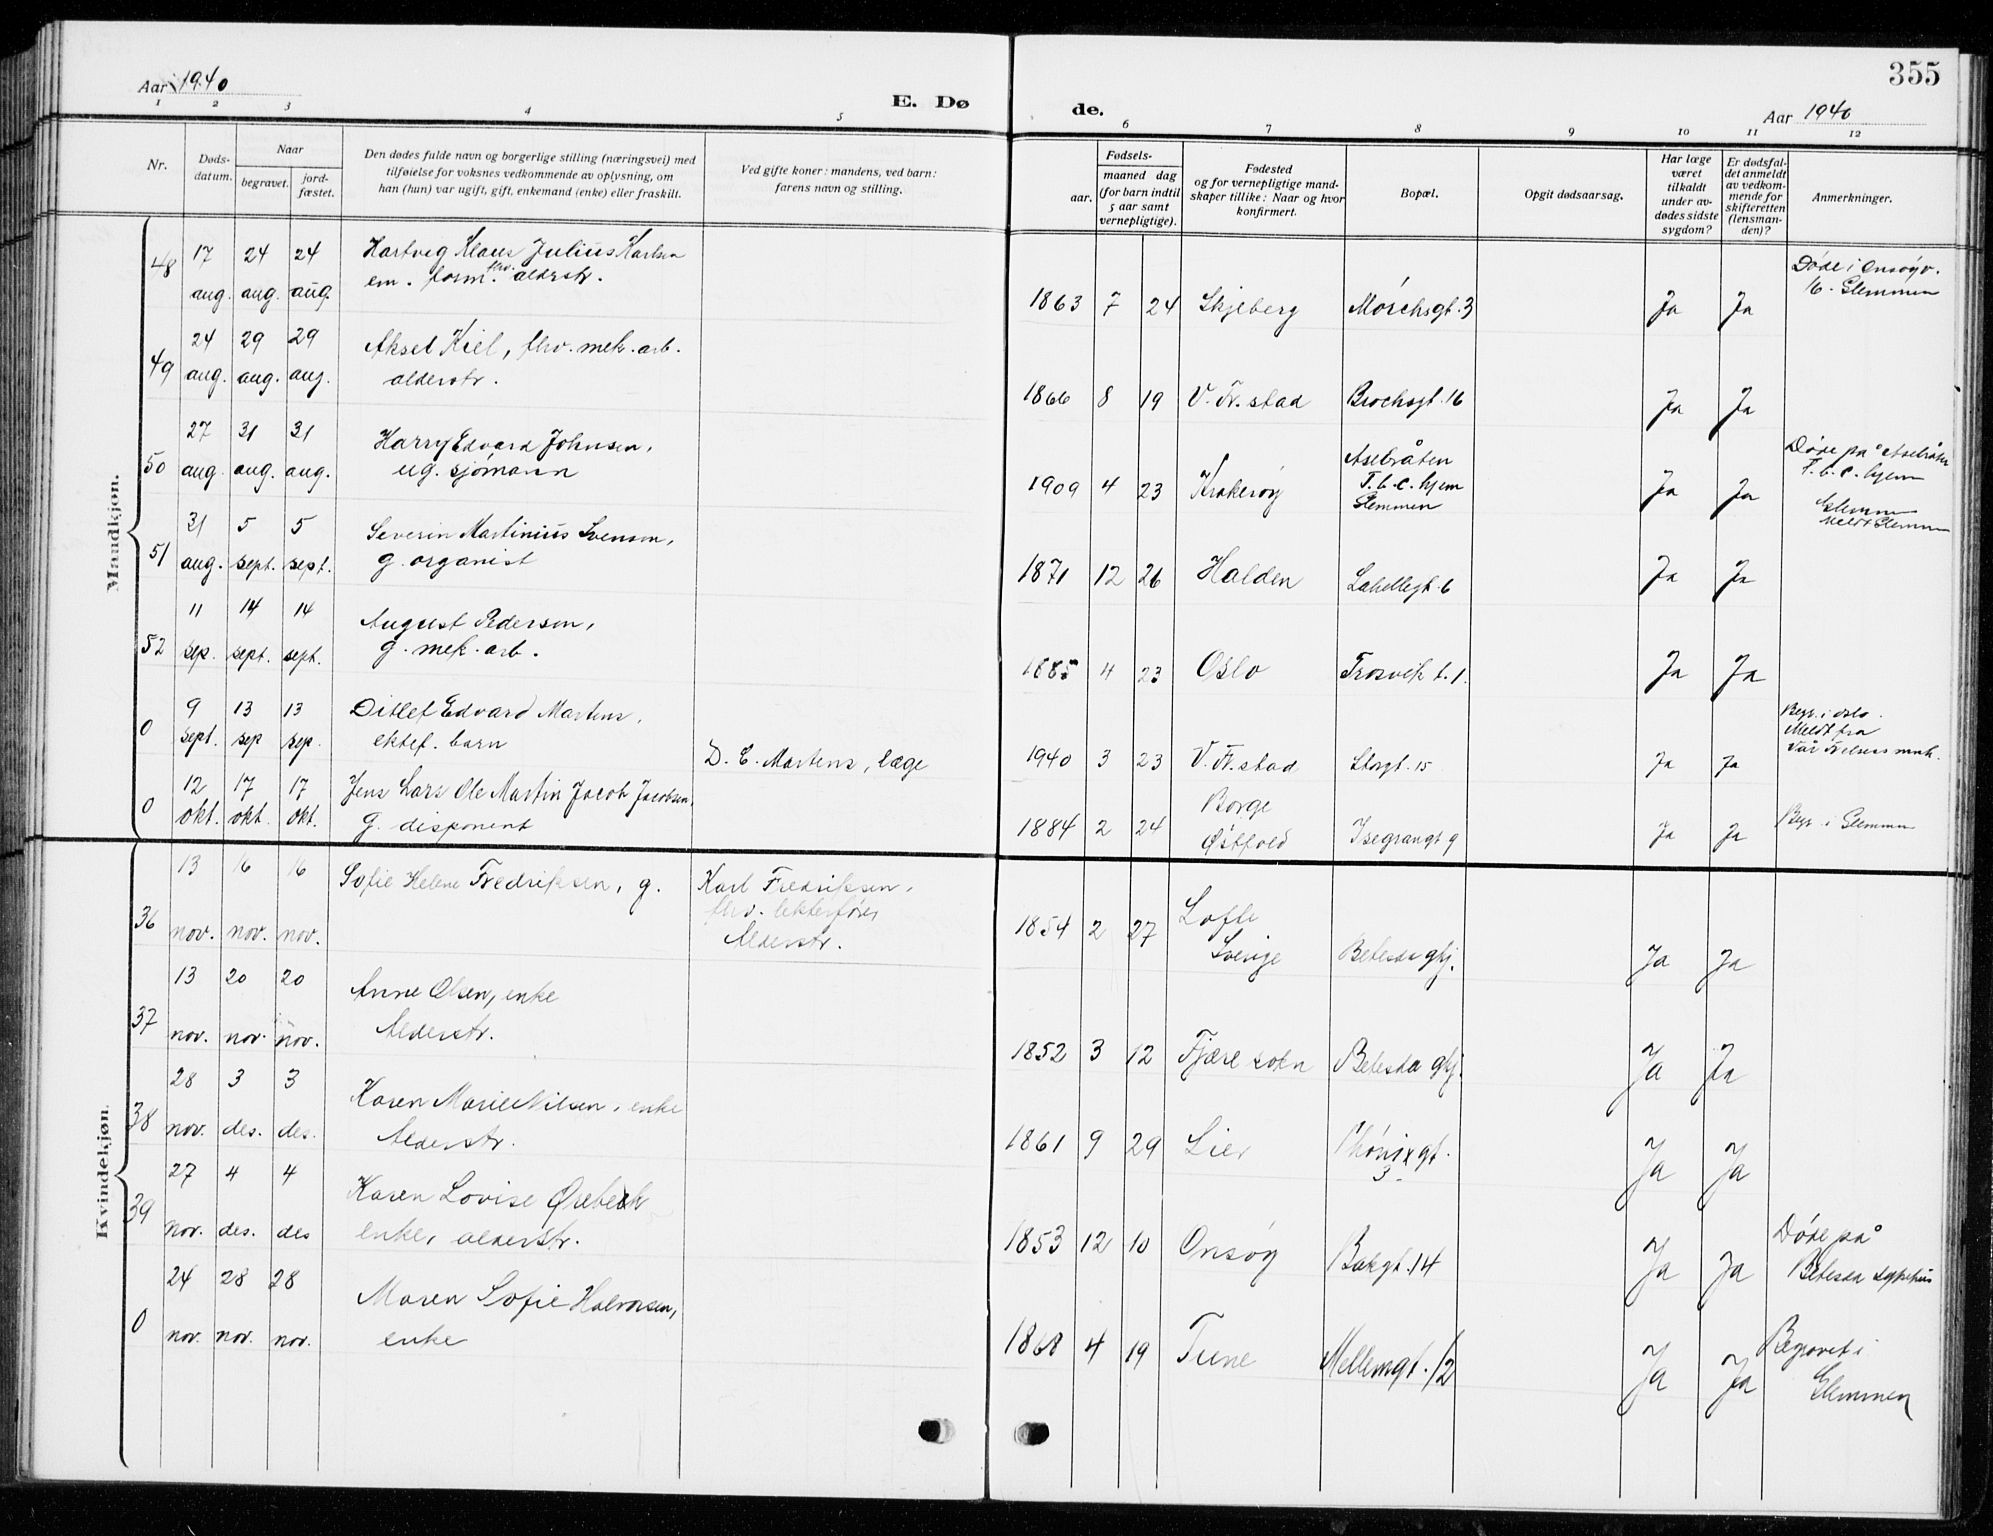 355
Aar 1940
E. Dø
de.
Aar 1940
1 2 3 4 5 6 7 8 9 10 11 12
Nr.
Døds-
datum.
Naar
begravet.
jord-
fæstet.
Den dødes fulde navn og borgerlige stilling (næringsvei) med
tilføielse for voksnes vedkommende av oplysning, om
han (hun) var ugift, gift, enkemand (enke) eller fraskilt.
Ved gifte koner: mandens, ved barn:
farens navn og stilling.
Fødsels-
aar.
maaned dag
(for barn indtil
5 aar samt
vernepligtige).
Fødested
og for vernepligtige mand-
skaper tillike: Naar og hvor
konfirmert.
Bopæl.
Opgit dødsaarsag.
Har læge
været
tilkaldt
under av-
dødes sidste
sygdom?
Er dødsfal-
det anmeldt
av vedkom-
mende for
skifteretten
(lensman-
den)?
Anmerkninger.
Mandkjøn.
48 17 24 24 Hartvig Klaus Julius Karlsen
aug. aug. aug. em. form. fhv. alderstr.
1863 7 24 Skjeberg Mørchsgt. 3 Ja Ja
Døde i Onsøy.
Glemmen
49 24 29 29 Aksel Kiel, fhv. mek. arb.
aug. aug. aug. alderstr.
1866 8 19 V. Fr.stad Brochsgt. 16 Ja Ja
50 27 31 31 Harry Edvard Johnsen,
aug. aug. aug. ug. sjømann
1909 4 23 Krakerøy Aselråten
T.b.c. hjem
Glemmen
Ja Ja
Døde på Aselråten
T.b.c. hjem
Glemmen
Meldt Glemmen
51 31 5 5 Severin Martinius Svensen,
aug. sept. sept. g. organist
1871 12 26 Halden Lahellegt. 6 Ja Ja
52 11 14 14 August Pedersen,
sep. sept. sept. g. mek. arb.
1885 4 23 Oslo Trosvik t. 1. Ja Ja
0 9 13 13 Ditlef Edvard Martens,
sept. sep sep. ektef. barn
D. E. Martens, læge
1940 3 23 V. Fr.stad Storgt. 15 Ja Ja
Begr. i Oslo.
Meldt fra
Vår Frelsers menh.
0 12 17 17 Jens Lars Ole Martin Jacob Jacobsen,
okt. okt. okt. g. disponent
1884 2 24 Borge
Østfold
Isegrangt 9 Ja Ja
Begr. i Glemmen
Kvindekjøn.
36 13 16 16 Sofie Helene Fredriksen, g.
nov. nov. nov.
Karl Fredriksen,
fhv. lekterfører
Alderstr.
1854 2 27 Lofte
Sverige
Betesda ghj. Ja Ja
37 13 20 20 Anne Olsen, enke
nov. nov. nov. Alderstr.
1852 3 12 Fjære sokn Betesda ghj. Ja Ja
38 28 3 3 Karen Marie Nilsen, enke
nov. des. des. Alderstr.
1861 9 29 Lier Phønixgt.
3
Ja Ja
39 27 4 4 Karen Lovise Ørebeck
nov. des. des enke, alderstr.
1853 12 10 Onsøy Bakgt. 14 Ja Ja
Døde på
Betesda sykehus
0 24 28 28 Maren Sofie Halvorsen,
nov. nov. nov. enke
1868 4 19 Tune Mellemgt. 12 Ja Ja
Begravet i
Glemmen